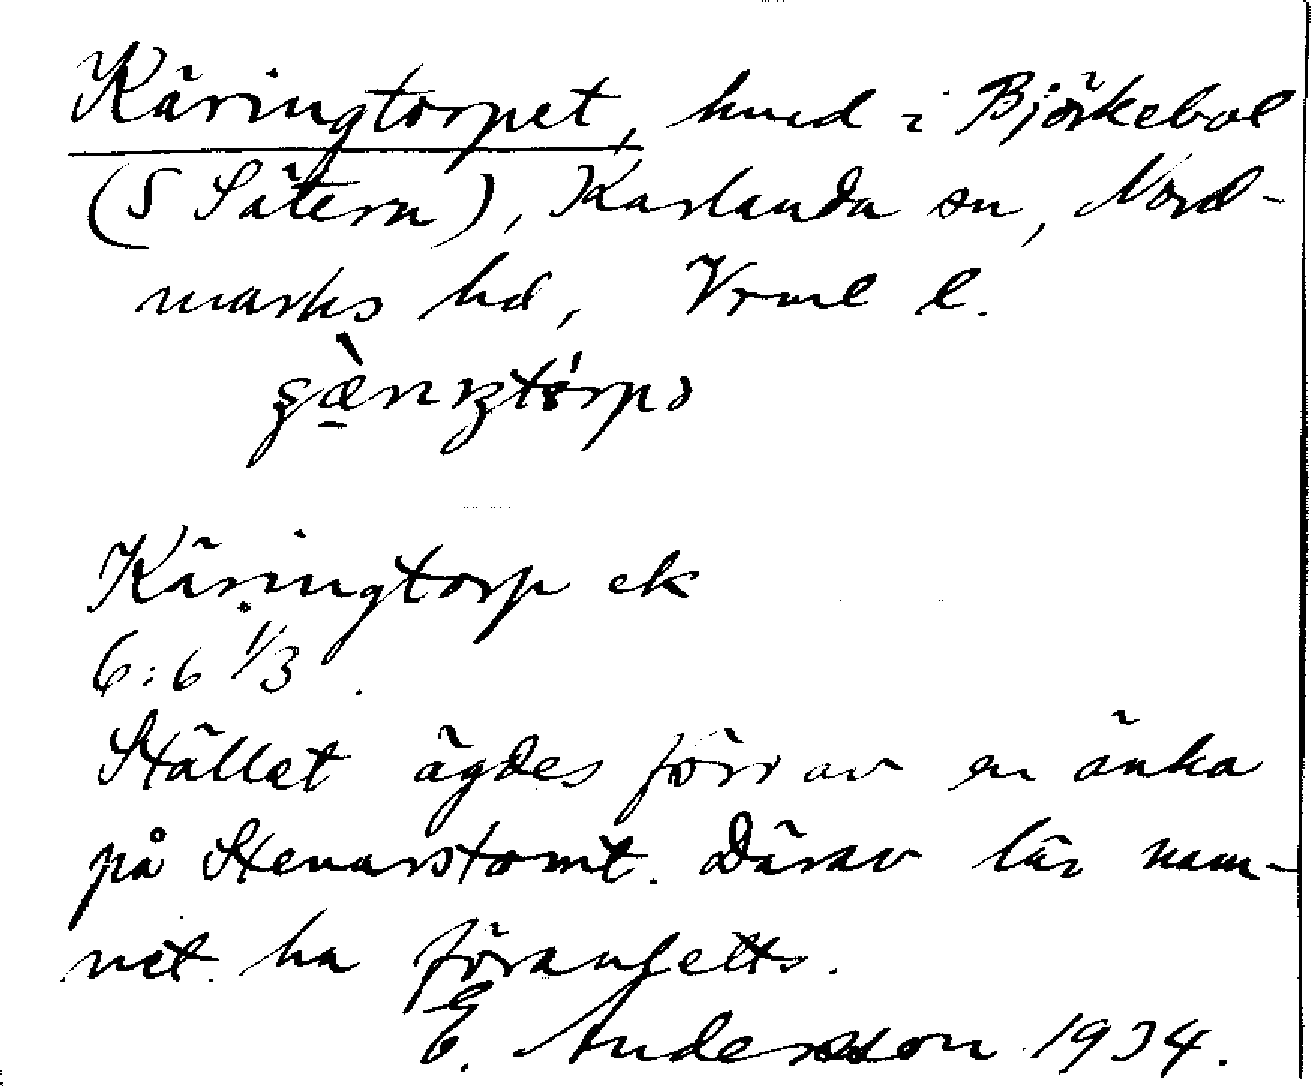 Käringtorpet, hmd i Björkebol
(S Sätern), Karlanda sn, Nord-
marks hd, Vrml l.
Käringtorp ek
6:6 1/3.
Stället ägdes förr av en änka
på Stenarstomt. Därav lär nam-
net ha föranletts.
E. Andersson 1934.